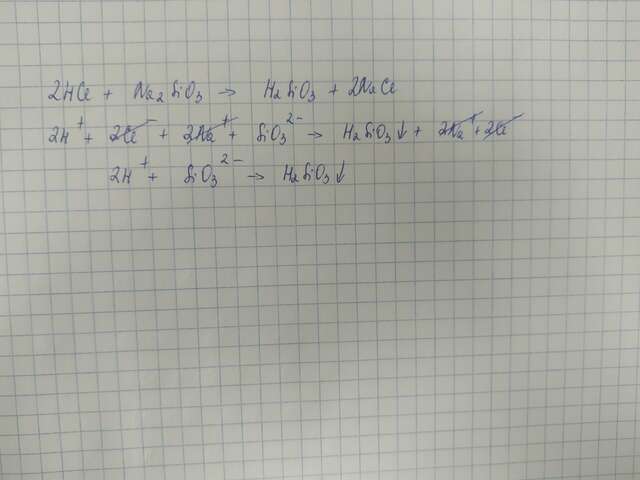 2HCl + Na₂SiO₃ → H₂SiO₃ + 2NaCl
2H⁺ + 2Cl⁻ + 2Na⁺ + SiO₃²⁻ → H₂SiO₃↓ + 2Na⁺ + 2Cl⁻
2H⁺ + SiO₃²⁻ → H₂SiO₃↓